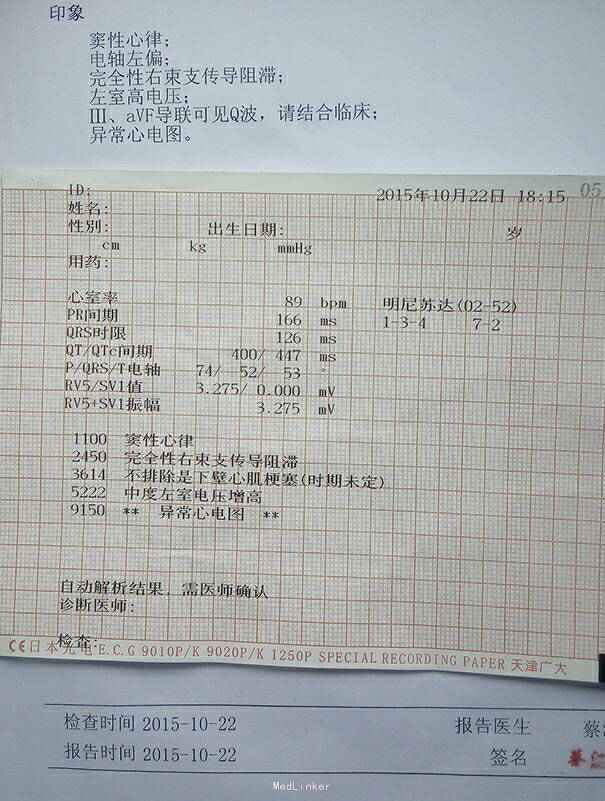 印象
窦性心律;
电轴左偏;
完全性右束支传导阻滞;
左室高电压;
III、aVF导联可见Q波, 请结合临床;
异常心电图。
ID: 2015年10月22日 18:15 05
姓名:
性别: 出生日期: 岁
cm kg mmHg
用药:
心室率 89 bpm 明尼苏达(02-52)
PR间期 166 ms 1-3-4 7-2
QRS时限 126 ms
QT/QTc间期 400/ 447 ms
P/QRS/T电轴 74/ 52/ 53 °
RV5/SV1值 3.275/ 0.000 mV
RV5+SV1振幅 3.275 mV
1100 窦性心律
2450 完全性右束支传导阻滞
3614 不排除是下壁心肌梗塞(时期未定)
5222 中度左室电压增高
9150 ** 异常心电图 **
自动解析结果, 需医师确认
诊断医师:
检查:
CE日本光电 E.C.G 9010P/K 9020P/K 1250P SPECIAL RECORDING PAPER 天津广大
检查时间 2015-10-22 报告医生 蔡
报告时间 2015-10-22 签名
MedLinker